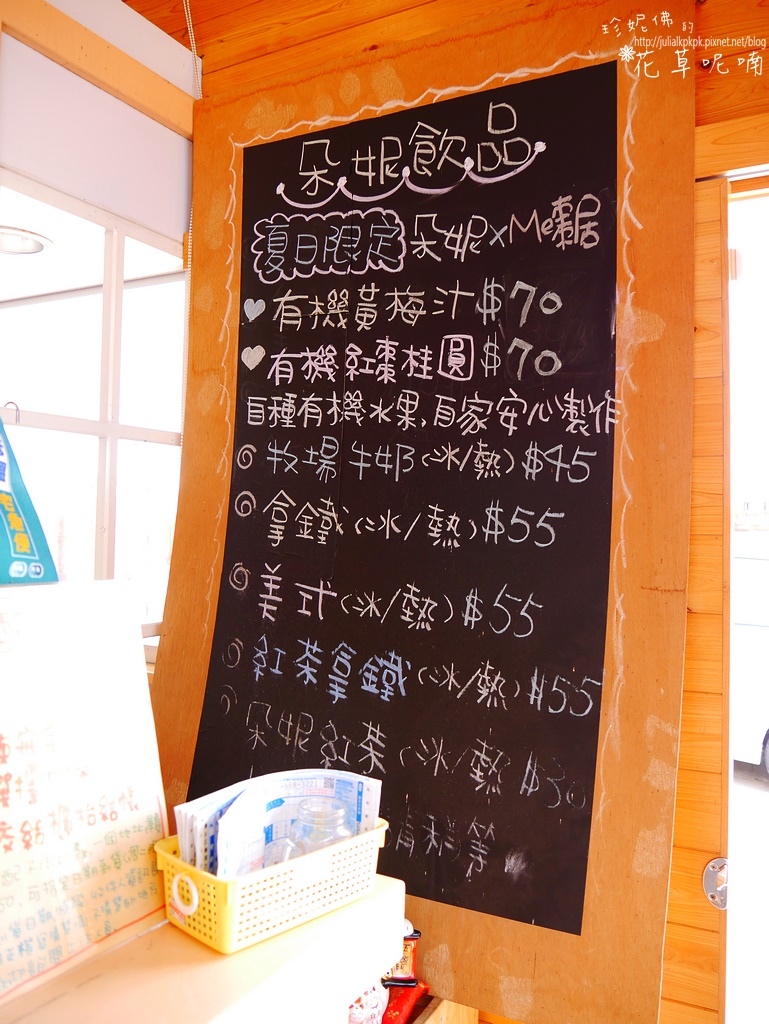 珍妮佛的
http://julialkpkpk.pixnet.net/blog
花草呢喃
朵妮飲品
夏日限定 朵妮×Me棗居
有機黃梅汁$70
有機紅棗桂圓$70
自種有機水果,自家安心製作
牧場牛奶(冰/熱)$45
拿鐵(冰/熱)$55
美式(冰/熱)$55
紅茶拿鐵(冰/熱)$55
朵妮紅茶(冰/熱)$30